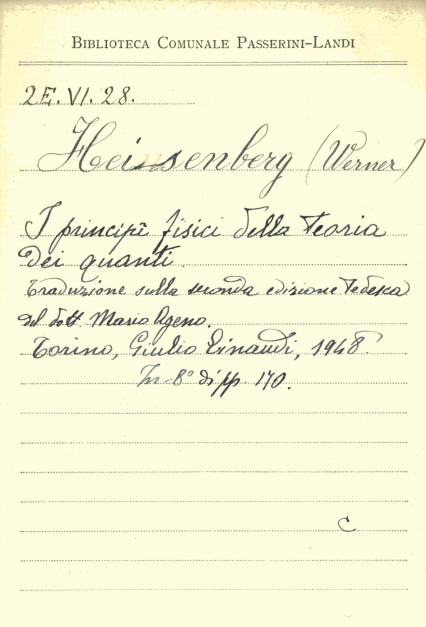 BIBLIOTECA COMUNALE PASSERINI-LANDI
2E. VI. 28.
Heisenberg (Werner)
I principî fisici della teoria
dei quanti.
Traduzione sulla seconda edizione tedesca
del dott. Mario Ageno.
Torino, Giulio Einaudi, 1948.
In-8° di pp. 170.
C